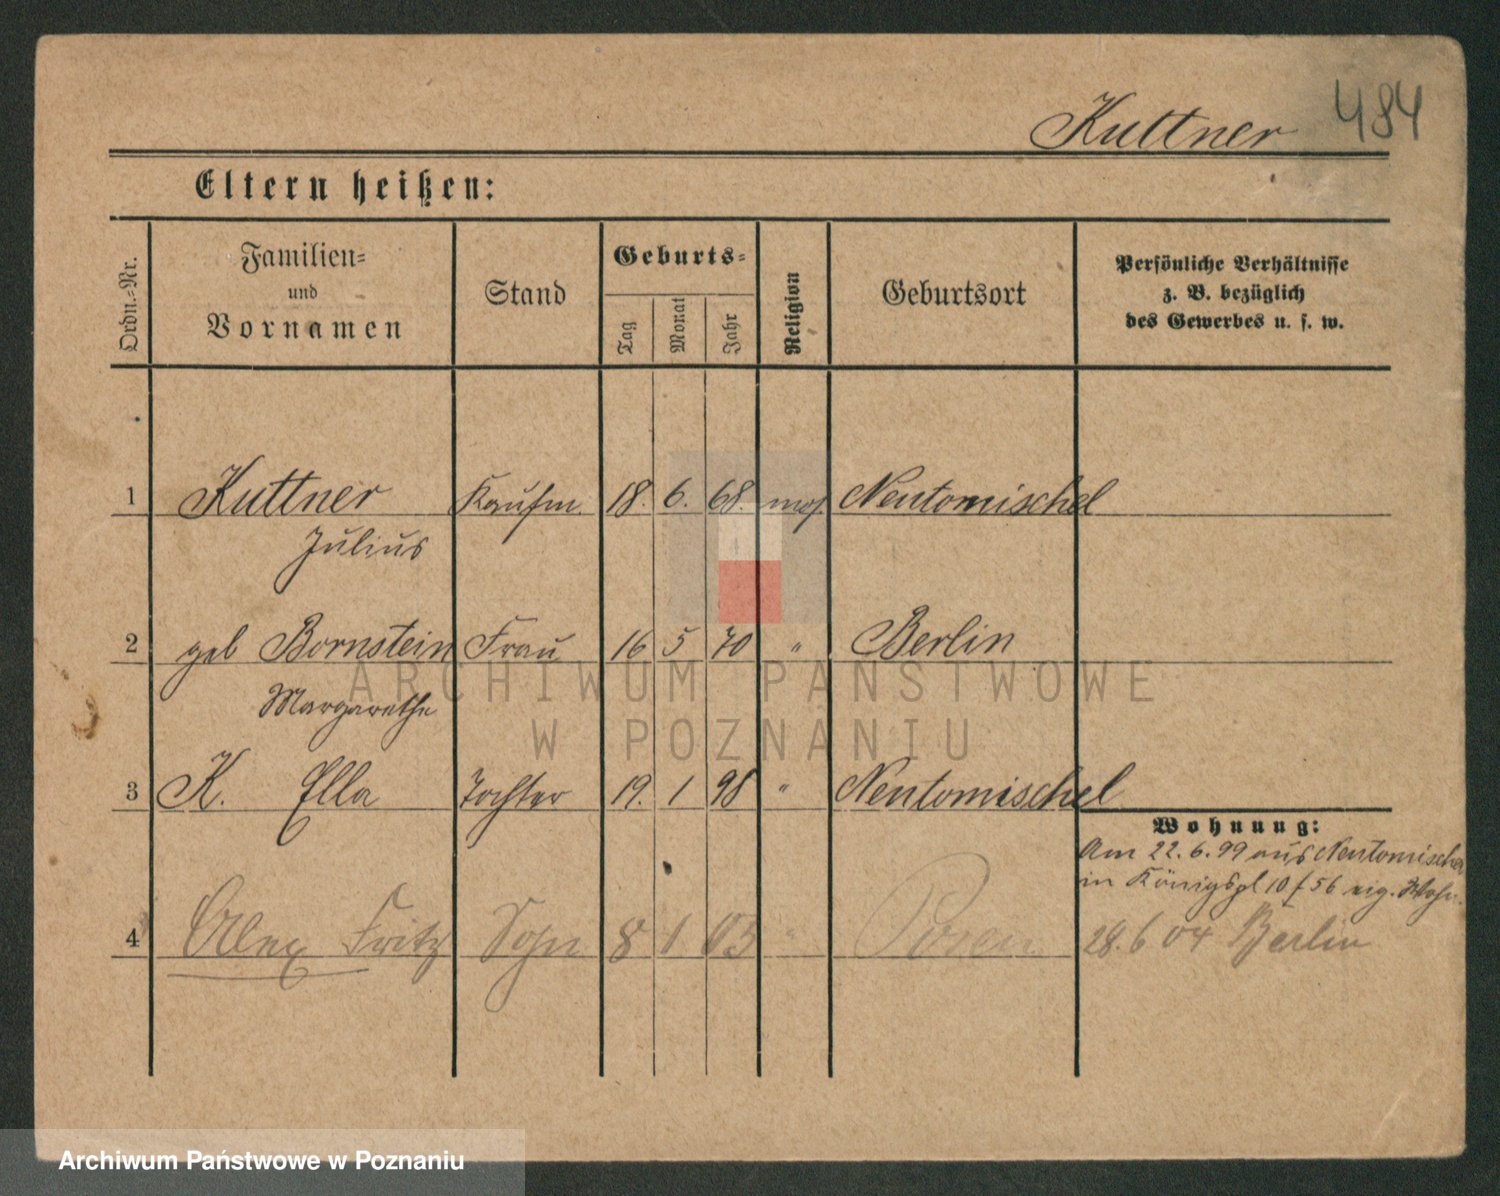 Kuttner 484
Eltern heißen:
Ordn.-Nr. Familien- und Vornamen Stand Geburts- Tag Monat Jahr Religion Geburtsort Persönliche Verhältnisse z. B. bezüglich des Gewerbes u. s. w.
1 Kuttner Kaufm. 18. 6. 68. mos. Neutomischel
Julius
2 geb Bornstein Frau 16 5 70 " Berlin
Margarethe
3 K. Ella Tochter 19. 1 98 " Neutomischel
Wohnung:
Am 22.6.99 aus Neutomischel
in Königspl 10 / 56 eig. Wohn.
4 Alex Fritz Sohn 8 1 03 " Posen 28.6 04 Berlin
ARCHIWUM PAŃSTWOWE
W POZNANIU
Archiwum Państwowe w Poznaniu